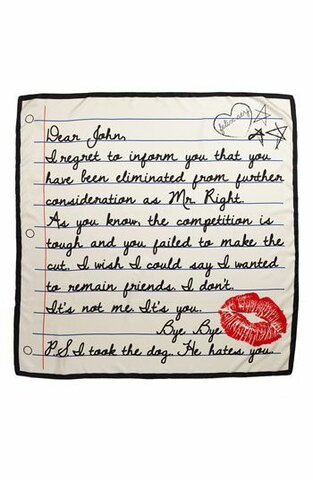 Dear John,
I regret to inform you that you
have been eliminated from further
consideration as Mr. Right.
As you know, the competition is
tough and you failed to make the
cut. I wish I could say I wanted
to remain friends. I don't.
It's not me. It's you.
Bye, Bye
P.S I took the dog. He hates you.